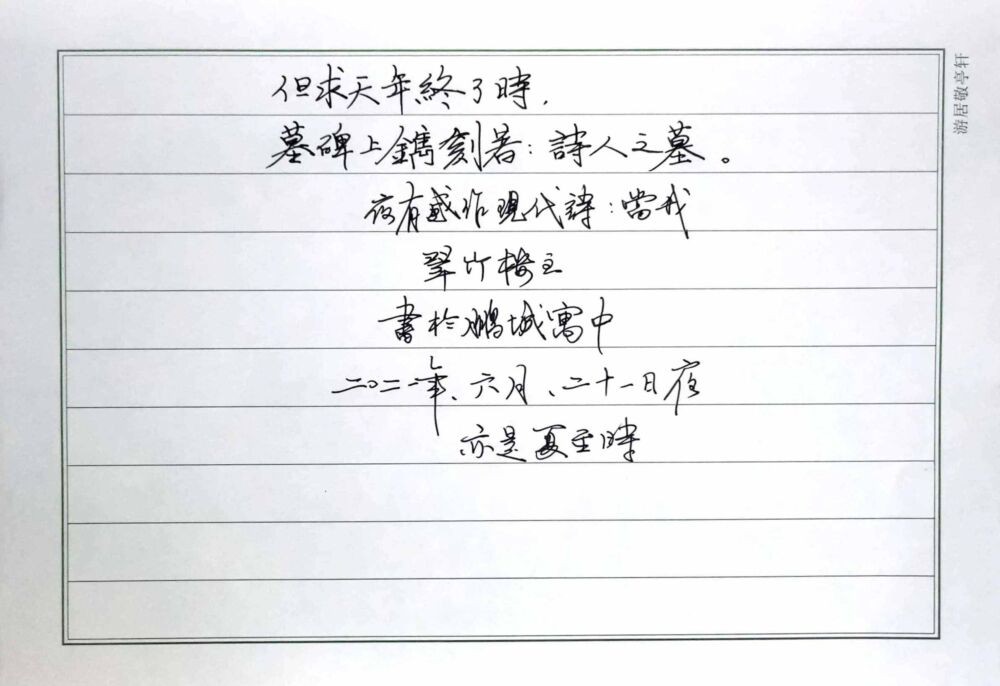 但求天年終了時，
墓碑上鐫刻著：詩人之墓。
夜有感作現代詩：當我
翠竹樓主
書於鵬城寓中
二〇二二年、六月、二十一日夜
亦是夏至時
游居敬亭轩